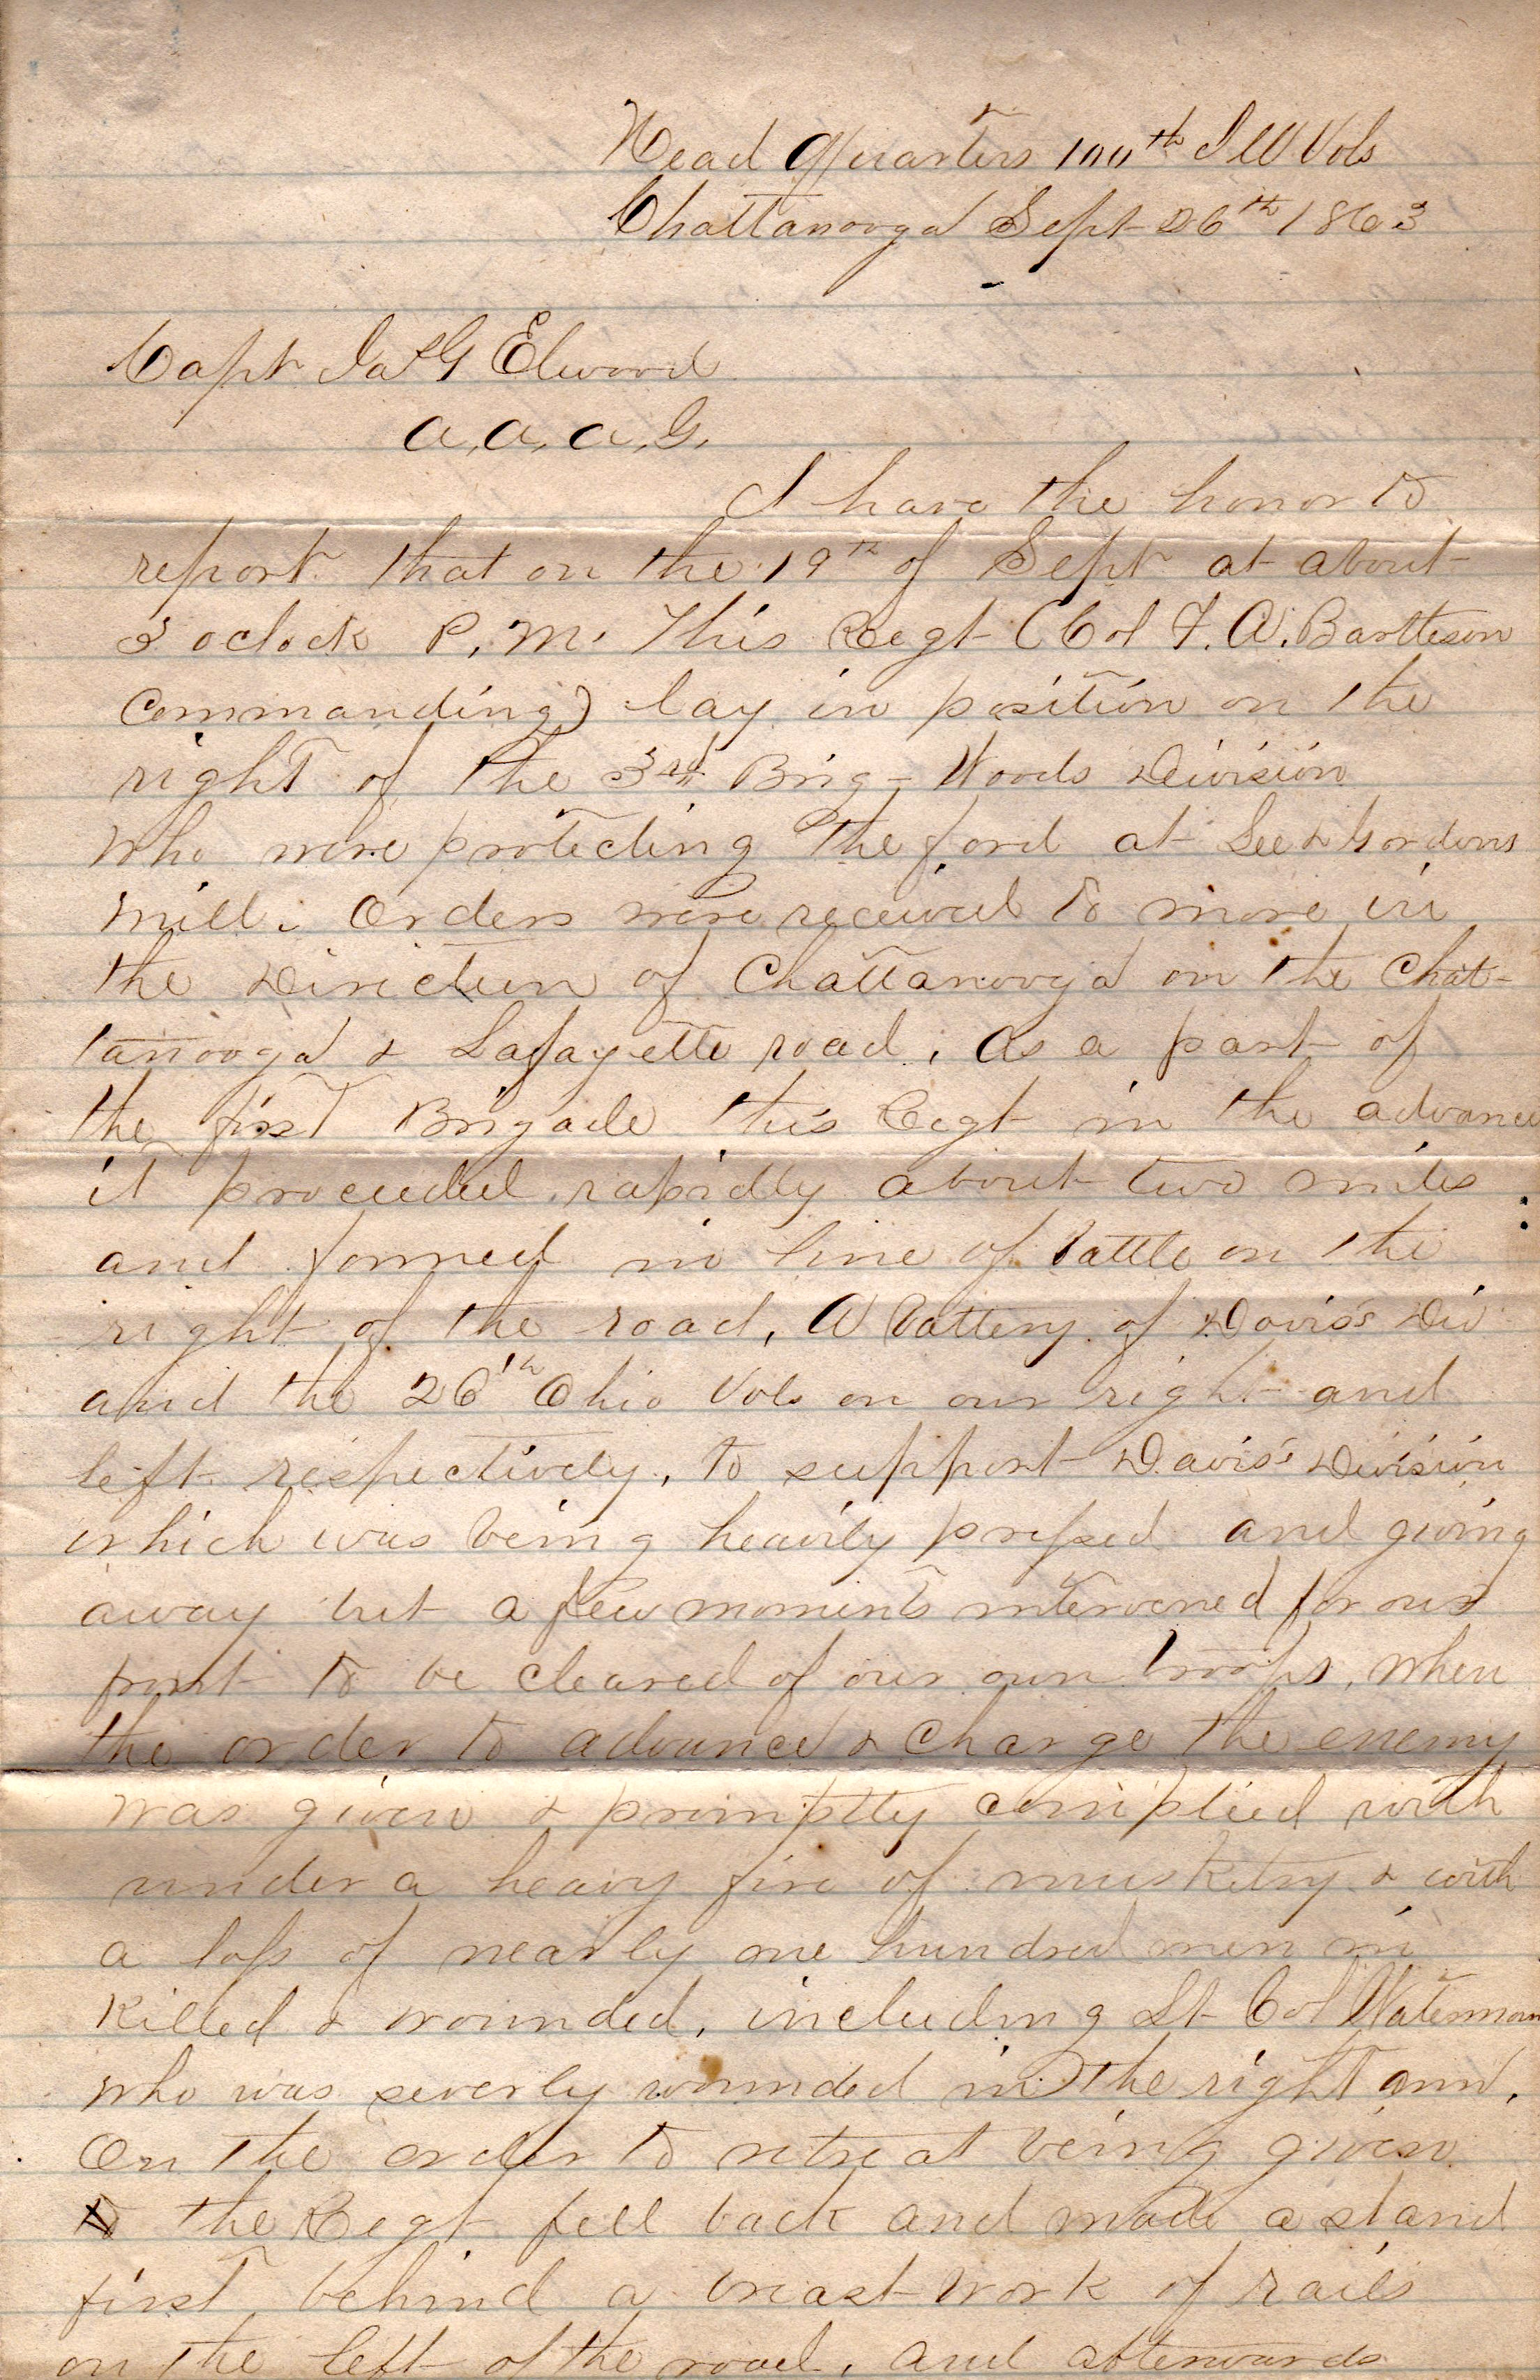 Head Quarters 100th Ill Vols
Chattanooga Sept 26th 1863
Capt Jas G Elwood
A.A.A.G.
I have the honor to
report that on the 19th of Sept at about
3 oclock P.M. This Regt (Col F.A. Bartleson
Commanding) lay in position on the
right of the 3rd Brig- Woods Division
who were protecting the ford at Lee & Gordons
Mill. Orders were received to move in
the Direction of Chattanooga on the Chat-
tanooga & Lafayette road. As a part of
the first Brigade this Regt in the advance
it proceeded rapidly about two miles
and formed in line of battle on the
right of the road, A battery of Davis's Div
and the 26th Ohio Vols on our right and
left respectively, to support Davis's Division
which was being heavily pressed and giving
away but a few moments intervened for our
front to be cleared of our own troops, when
the order to advance & charge the enemy
was given & promptly complied with
under a heavy fire of musketry & with
a loss of nearly one hundred men in
killed & wounded, including Lt Col Waterman
who was severly wounded in the right arm.
On the order to retreat being given
the Regt fell back and made a stand
first behind a breast work of rails
on the left of the road, and afterwards